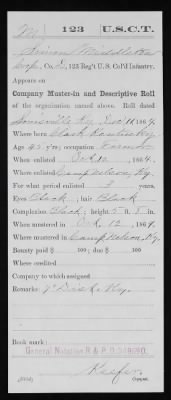 M | 123 | U.S.C.T.
Simon Middleton
Corp., Co. D, 123 Reg't U. S. Col'd Infantry.
Appears on
Company Muster-in and Descriptive Roll
of the organization named above. Roll dated
Louisville Ky, Dec 11, 1864.
Where born Clark Kentucky
Age 45 y'rs; occupation Farmer
When enlisted Oct 10, 1864.
Where enlisted Camp Nelson, Ky.
For what period enlisted 3 years.
Eyes Black; hair Black
Complexion Black; height 5 ft. 8 in.
When mustered in Oct. 12, 1864.
Where mustered in Camp Nelson, Ky.
Bounty paid $ 100; due $ 100
Where credited
Company to which assigned
Remarks: 7 Dist. Ky.
Book mark:
General Notation R & P D
Keefer
Copyist.